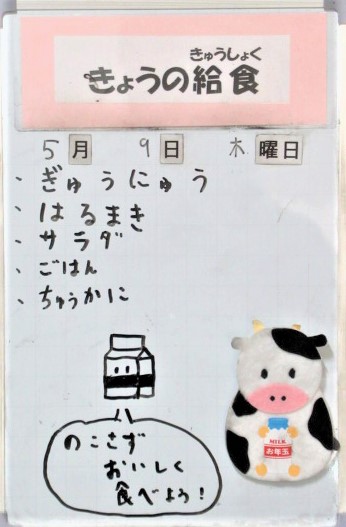 きゅうしょく
きょうの給食
5月 9日 木曜日
、ぎゅうにゅう
、はるまき
、サラダ
、ごはん
、ちゅうかに
のこさず
おいしく
食べよう!
MILK
お年玉